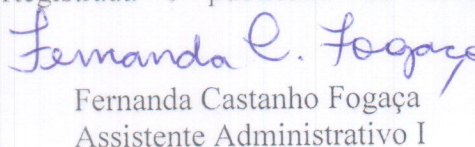 Registrada
Fernanda C. Fogaça
Fernanda Castanho Fogaça
Assistente Administrativo I